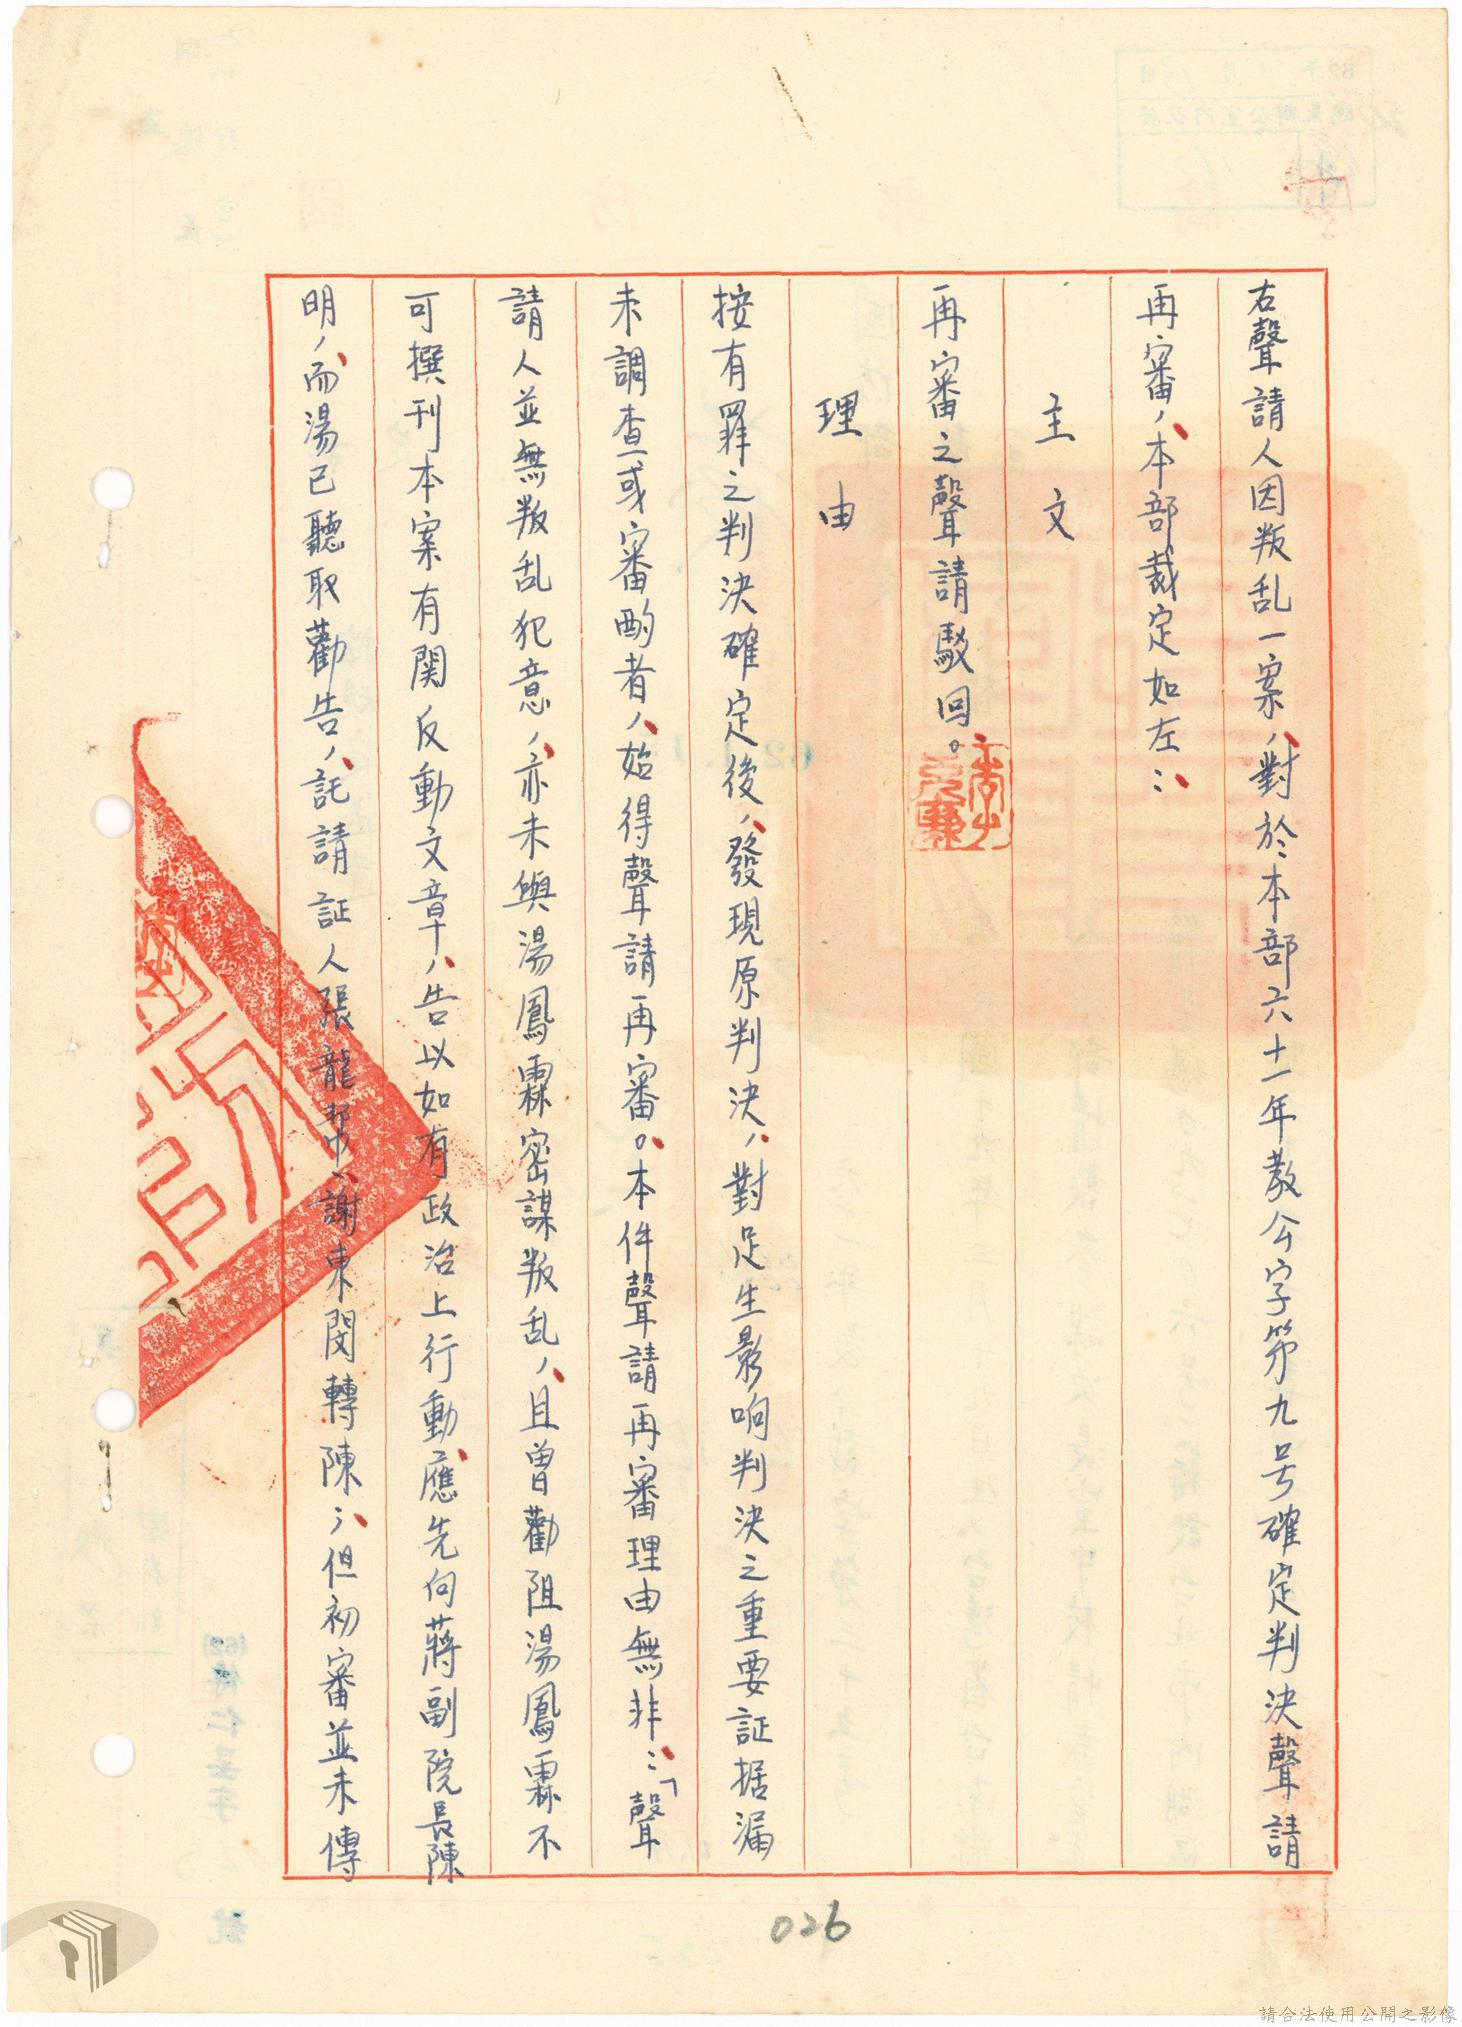 右聲請人因叛乱一案，對於本部六十一年教公字第九号確定判決聲請
再審，本部裁定如左：
主文
再審之聲請駁回。
理由
按有罪之判決確定後，發現原判決，對足生影响判決之重要証据漏
未調查或審酌者，始得聲請再審。本件聲請再審理由無非：「聲
請人並無叛乱犯意，亦未與湯鳳霖密謀叛乱，且曾勸阻湯鳳霖不
可撰刊本案有関反動文章，告以如有政治上行動應先向蔣副院長陳
明，而湯已聽取勸告，託請証人張龍幇、謝東閔轉陳；但初審並未傳
026
請合法使用公開之影像